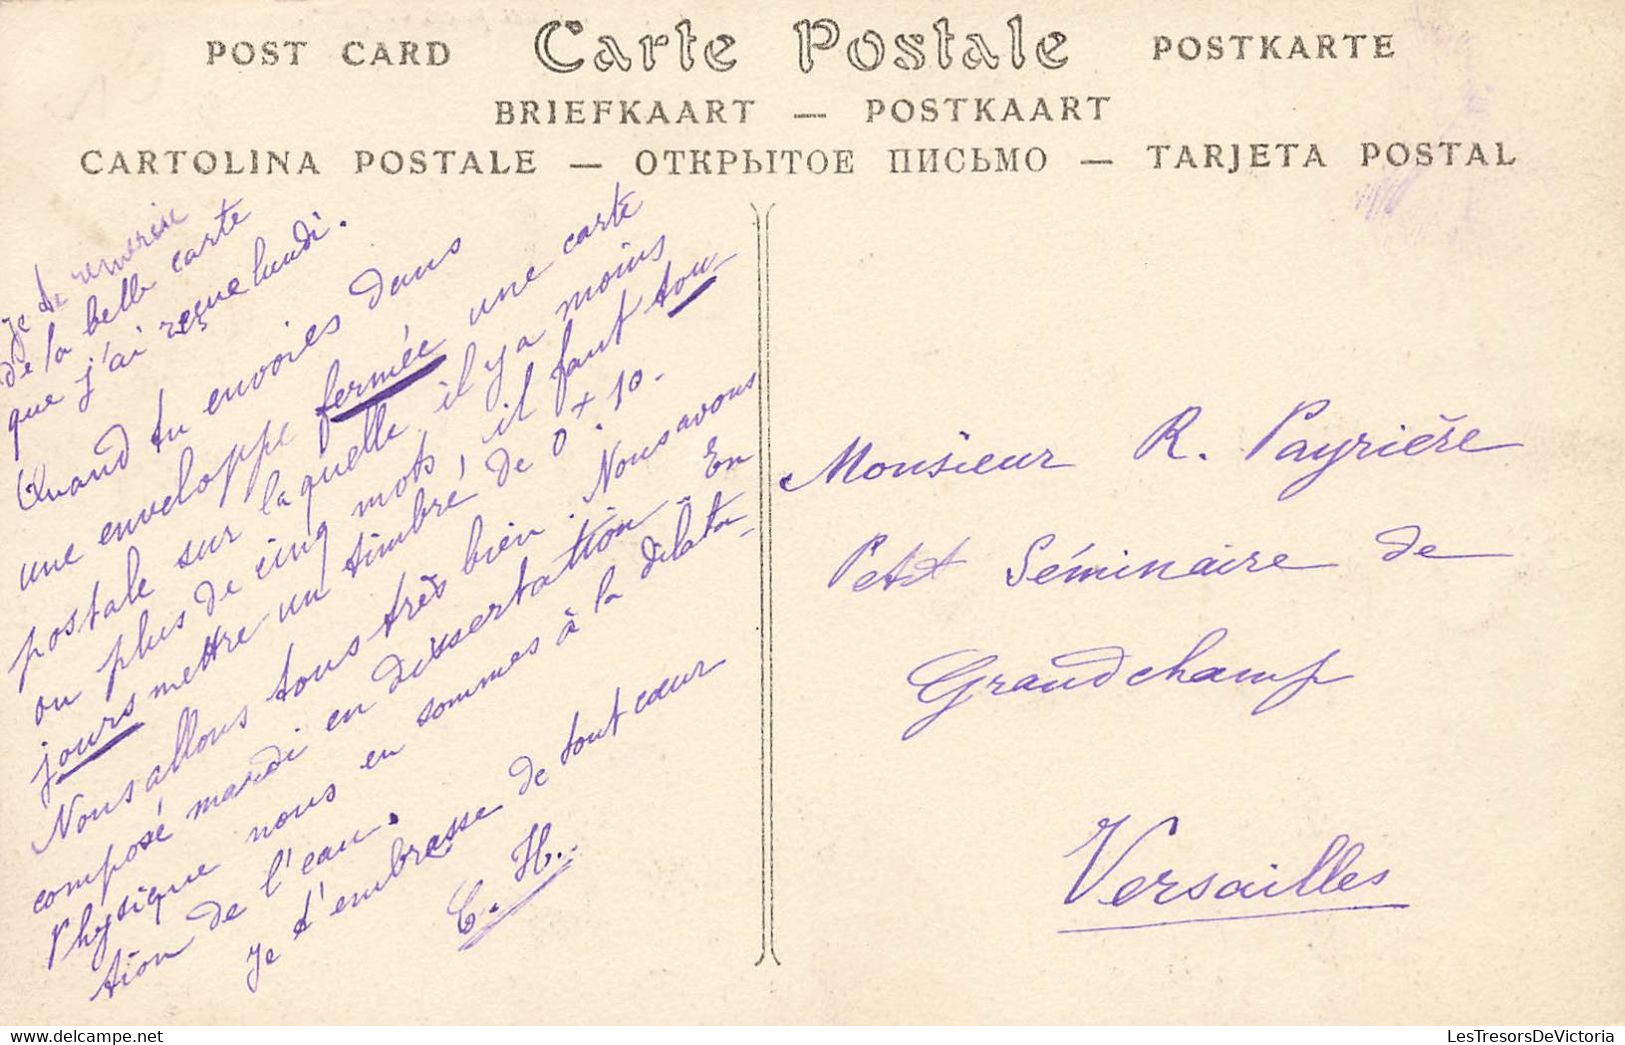 POST CARD Carte Postale POSTKARTE
BRIEFKAART — POSTKAART
CARTOLINA POSTALE — ОТКРЫТОЕ ПИСЬМО — TARJETA POSTAL
Je te remercie
de la belle carte
que j'ai reçue lundi.
Quand tu envoies dans
une enveloppe fermée une carte
postale sur laquelle il y a moins
ou plus de cinq mots, il faut tou-
jours mettre un timbre de 0+10.
Nous allons tous très bien. Nous avons
composé mardi en dissertation - En
Physique nous en sommes à la dilata-
tion de l'eau.
Je t'embrasse de tout cœur
C. H.
Monsieur R. Payrière
Petit Séminaire de
Grandchamp
Versailles
LesTresorsDeVictoria LesTresorsDeVictoria.com